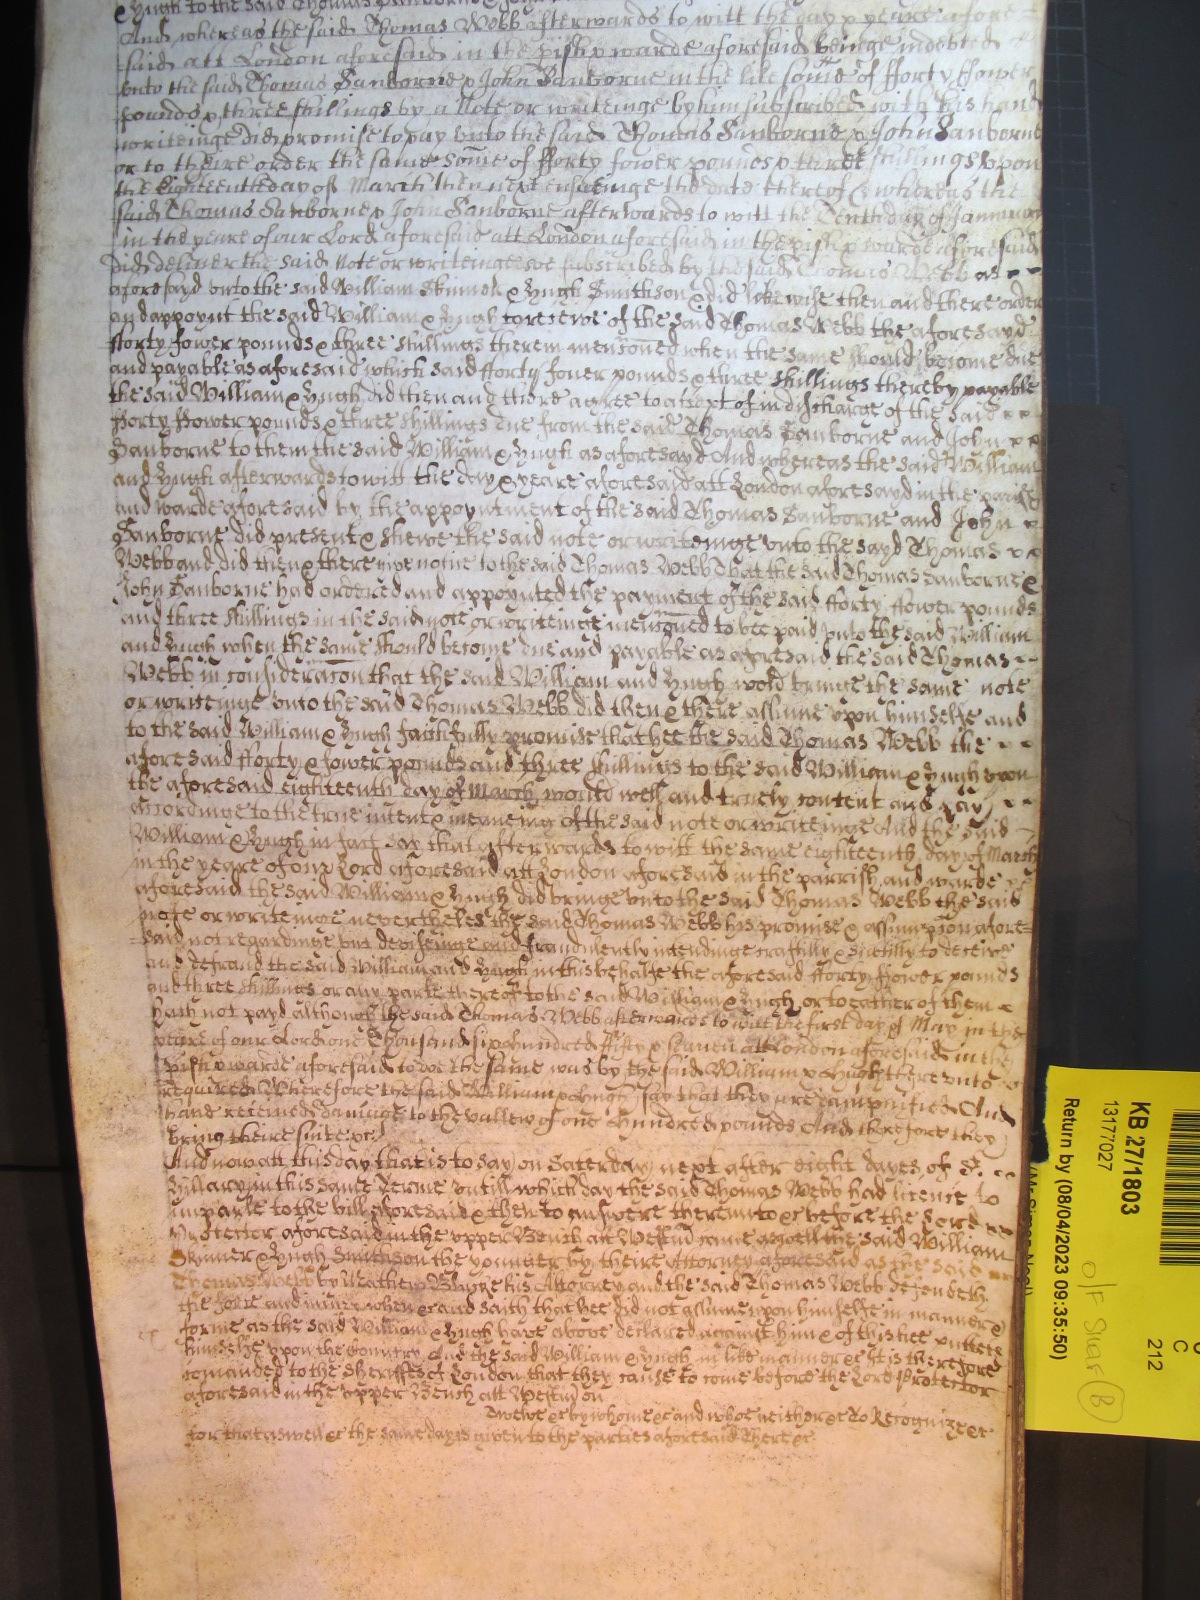 & Hugh to the said Thomas Sanborne & John
And whereas the said Thomas Webb afterwards to witt the day & yeare afore=
said att London aforesaid in the pish & warde aforesaid beinge indebted
vnto the said Thomas Sanborne & John Sanborne in the like some of fforty ffower
pounds & three shillings by a Note or writeinge by him subscribed with his hand
writeinge did promise to pay vnto the said Thomas Sanborne & John Sanborne
or to theire order the same some of fforty fower pounds & three shillings vpon
the Eighteenth day of March then next ensueinge the date thereof & whereas the
said Thomas Sanborne & John Sanborne afterwards to witt the Tenth day of January
in the yeare of our Lord aforesaid att London aforesaid in the pish & warde aforesaid
did deliuer the said Note or writeinge soe subscribed by the said Thomas Webb as
aforesayd vnto the said William Skinner & Hugh Smithson & did likewise then and there order
and appoynt the said William & Hugh to receiue of the said Thomas Webb the aforesayd
fforty fower pounds & three shillings therein menconed when the same should become due
and payable as aforesaid which said fforty fower pounds & three shillings thereby payable
the said William & Hugh did then and there agree to accept of in discharge of the said
fforty ffower pounds & three shillings due from the said Thomas Sanborne and John
Sanborne to them the said William & Hugh as aforesayd And whereas the said William
and Hugh afterwards to witt the day & yeare aforesaid att London aforesayd in the parish
and warde aforesaid by the appoyntment of the said Thomas Sanborne and John
Sanborne did present & shewe the said note or writeinge vnto the sayd Thomas
Webb and did then & there giue notice to the said Thomas Webb that the said Thomas Sanborne &
John Sanborne had ordered and appoynted the payment of the said fforty ffower pounds
and three shillings in the said note or writeinge menconed to bee paid vnto the said William
and Hugh when the same should become due and payable as aforesaid the said Thomas
Webb in consideracon that the said William and Hugh wold bringe the same note
or writeinge vnto the said Thomas Webb did then & there assume vpon himselfe and
to the said William & Hugh faithfully promise that hee the said Thomas Webb the
aforesaid fforty & fower pounds and three shillings to the said William & Hugh vpon
the aforesaid eighteenth day of March would well and truely content and pay
accordinge to the true intent & meaneing of the said note or writeinge And the said
William & Hugh in fact say that afterwards to witt the same eighteenth day of March
in the yeare of our Lord aforesaid att London aforesaid in the parrish and warde
aforesaid the said William & Hugh did bringe vnto the said Thomas Webb the said
note or writeinge neuertheles the said Thomas Webb his promise & assumpcion afore=
said not regardinge but deviseinge and fraudulently intendinge craftilly & subtilly to deceiue
and defraud the said William and Hugh in this behalfe the aforesaid fforty ffower pounds
and three shillings or any parte thereof to the said William & Hugh or to eather of them
hath not payd although the said Thomas Webb afterwards to witt the first day of May in the
yeare of our Lord one Thousand six hundred fifty & seauen att London aforesaid in the
pish & warde aforesaid to doe the same was by the said William & Hugh therevnto
required Wherefore the said William & Hugh say that they are dampnified And
haue receiued damage to the vallew of one hundred pounds And therefore they
bring theire suite &c
And now att this day that is to say on Saterday next after eight dayes of St.
Hillary in this same Terme vntill which day the said Thomas Webb had licence to
imparle to the bill aforesaid & then to answere therevnto &c before the Lord
Protector aforesaid in the vpper Bench att Westm came aswell the said William
Skinner & Hugh Smithson the younger by theire Attorney aforesaid as the said
Thomas Webb by Mathew his Attorney and the said Thomas Webb defendeth
the force and iniury when &c and saith that hee did not assume vpon himselfe in manner &
forme as the said William & Hugh haue aboue declared against him & of this hee putteth
himselfe vpon the Country And the said William & Hugh in like manner &c It is therefore
comanded to the Sheriffes of London that they cause to come before the Lord Protector
aforesaid in the vpper Bench att Westm on
Twelve &c by whome &c and whoe neither &c to Recognize &c
for that aswell &c the same day is given to the parties aforesaid there &c
KB 27/1803
13177027
Return by (08/04/2023 09:35:50)
C
212
B